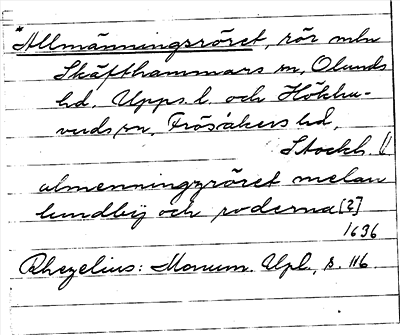 *Allmänningsröret, rör mln
Skäfthammars sn, Olands
hd, Upps. l. och Hökhu-
vuds sn, Frösåkers hd,
Stockh. l
almenningzröret melan
lundbÿ och roderna [?]
1636
Rhezelius: Monum. Upl., s. 116